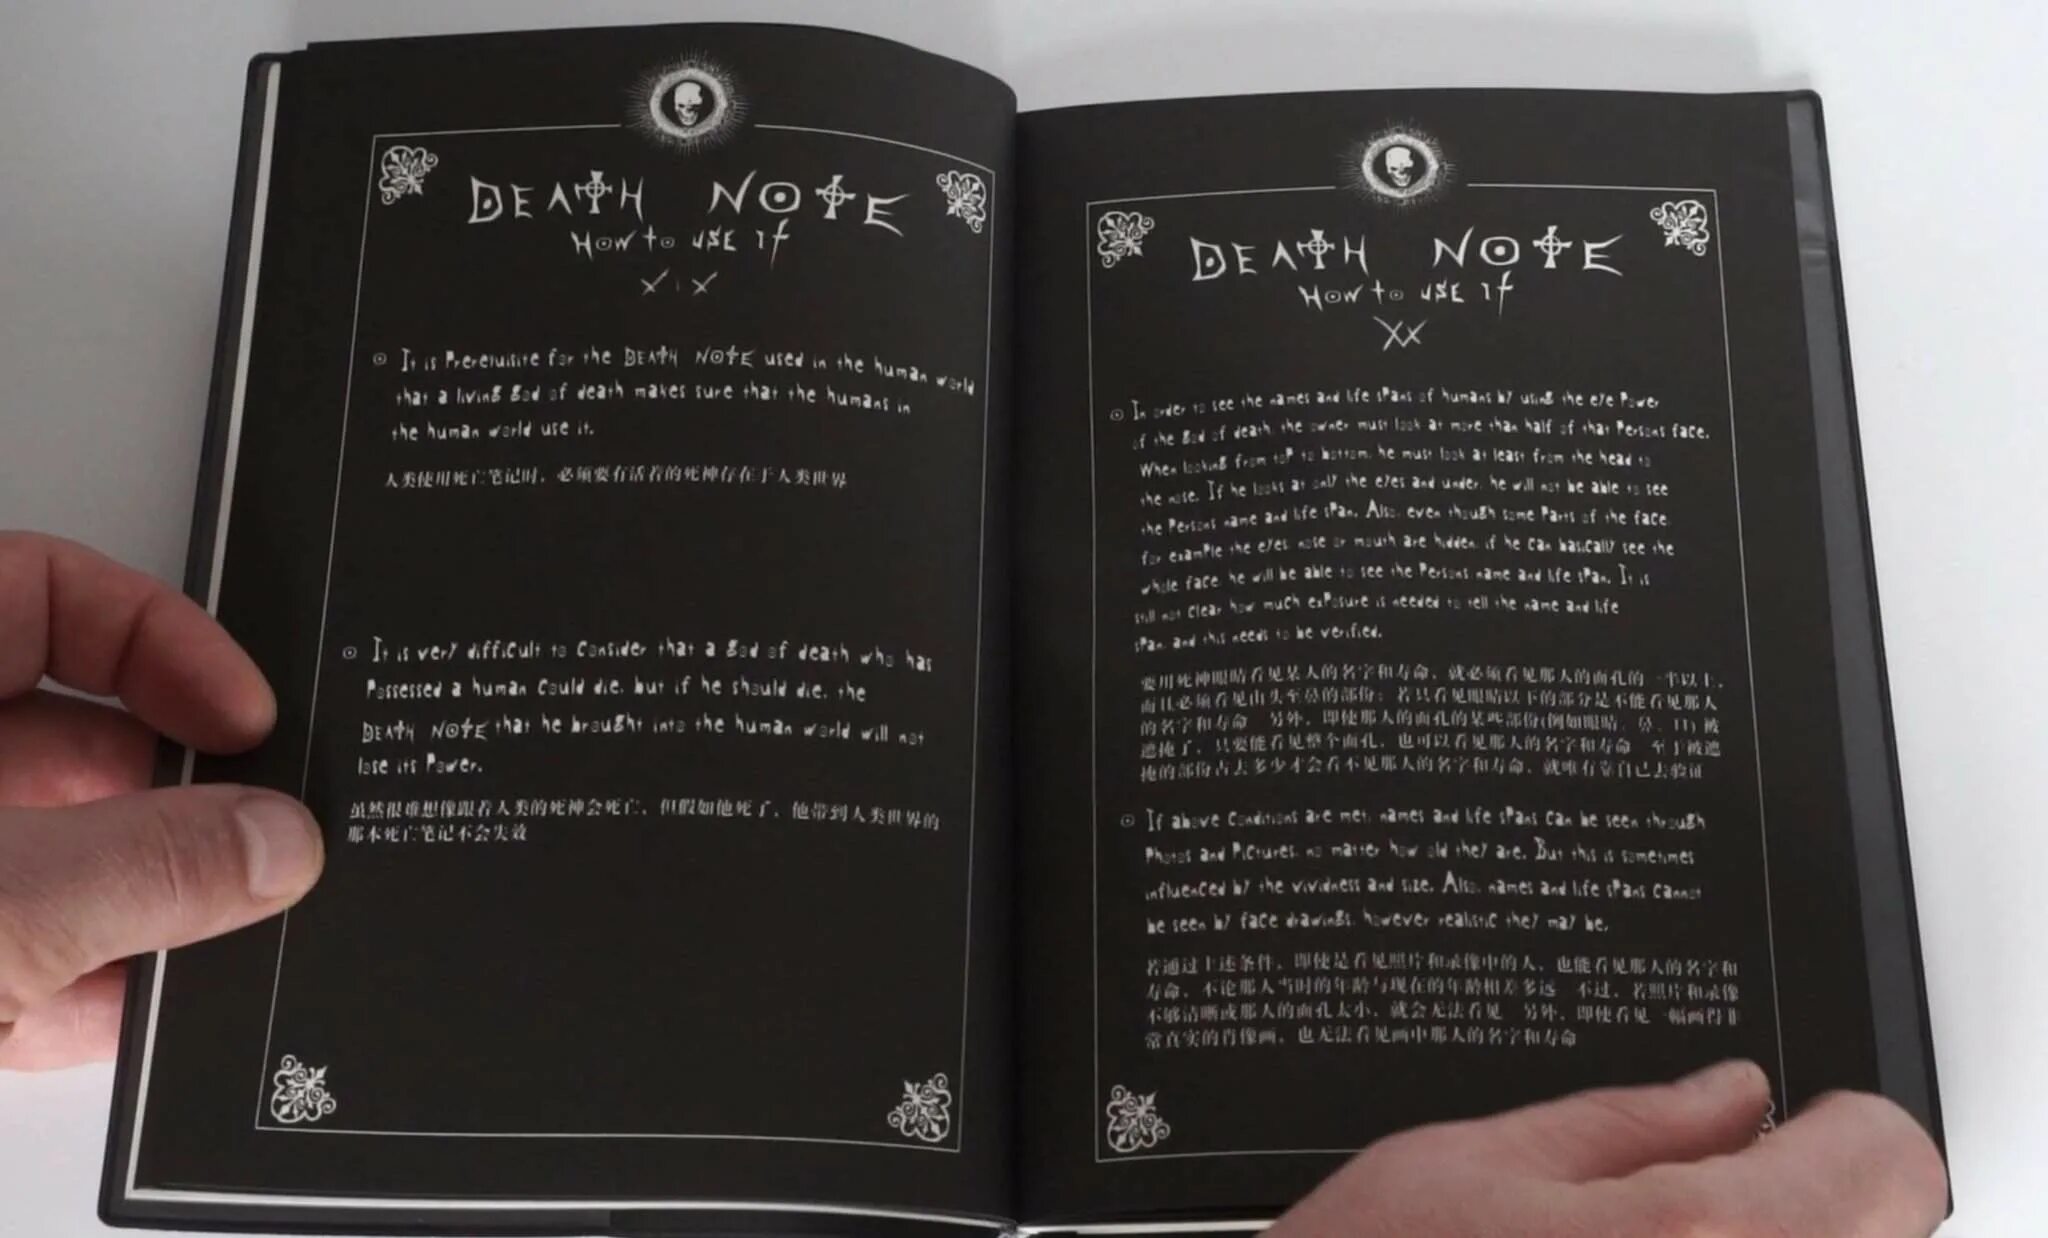 DEATH NOTE
How to use it
XIX
It is Prereluisite for the DEATH NOTE used in the human world
that a living god of death makes sure that the humans in
the human world use it.
人类使用死亡笔记时，必须要有活着的死神存在于人类世界
It is very difficult to consider that a god of death who has
Possessed a human could die, but if he should die, the
DEATH NOTE that he brought into the human world will not
lose its Power.
虽然很难想像跟着人类的死神会死亡，但假如他死了，他带到人类世界的
那本死亡笔记不会失效
DEATH NOTE
How to use it
XX
In order to see the names and life spans of humans by using the eye Power
of the god of death, the owner must look at more than half of that Persons face.
When looking from top to bottom, he must look at least from the head to
the nose. If he looks at only the eyes and under, he will not be able to see
the Persons name and life span. Also, even though some Parts of the face,
for example the eyes, nose or mouth are hidden, if he can basically see the
whole face, he will be able to see the Persons name and life span. It is
still not clear how much exposure is needed to tell the name and life
span, and this needs to be verified.
要用死神眼睛看见某人的名字和寿命，就必须看见那人的面孔的一半以上，
而且必须看见由头至鼻的部份；若只看见眼睛以下的部分是不能看见那人
的名字和寿命 另外，即使那人的面孔的某些部份(例如眼睛、鼻、口)被
遮掩了，只要能看见整个面孔，也可以看见那人的名字和寿命 至于被遮
掩的部份占去多少才会看不见那人的名字和寿命，就唯有靠自己去验证
If above conditions are met, names and life spans can be seen through
Photos and Pictures, no matter how old they are. But this is sometimes
influenced by the vividness and size. Also, names and life spans cannot
be seen by face drawings, however realistic they may be.
若通过上述条件，即使是看见照片和录像中的人，也能看见那人的名字和
寿命，不论那人当时的年龄与现在的年龄相差多远 不过，若照片和录像
不够清晰或那人的面孔太小，就会无法看见 另外，即使看见一幅画得非
常真实的肖像画，也无法看见画中那人的名字和寿命